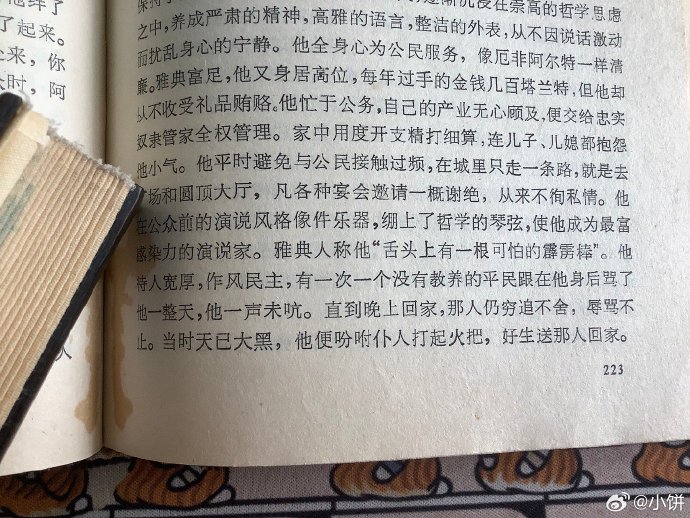 起来。
来，你
时，阿
人
保持
沉浸在崇高的哲学思虑
之中，养成严肃的精神，高雅的语言，整洁的外表，从不因说话激动
而扰乱身心的宁静。他全身心为公民服务，像厄非阿尔特一样清
廉。雅典富足，他又身居高位，每年过手的金钱几百塔兰特，但他却
从不收受礼品贿赂。他忙于公务，自己的产业无心顾及，便交给忠实
奴隶管家全权管理。家中用度开支精打细算，连儿子、儿媳都抱怨
他小气。他平时避免与公民接触过频，在城里只走一条路，就是去
场和圆顶大厅，凡各种宴会邀请一概谢绝，从来不徇私情。他
在公众前的演说风格像件乐器，绷上了哲学的琴弦，使他成为最富
感染力的演说家。雅典人称他“舌头上有一根可怕的霹雳棒”。他
待人宽厚，作风民主，有一次一个没有教养的平民跟在他身后骂了
他一整天，他一声未吭。直到晚上回家，那人仍穷追不舍，辱骂不
止。当时天已大黑，他便吩咐仆人打起火把，好生送那人回家。
223
@小饼